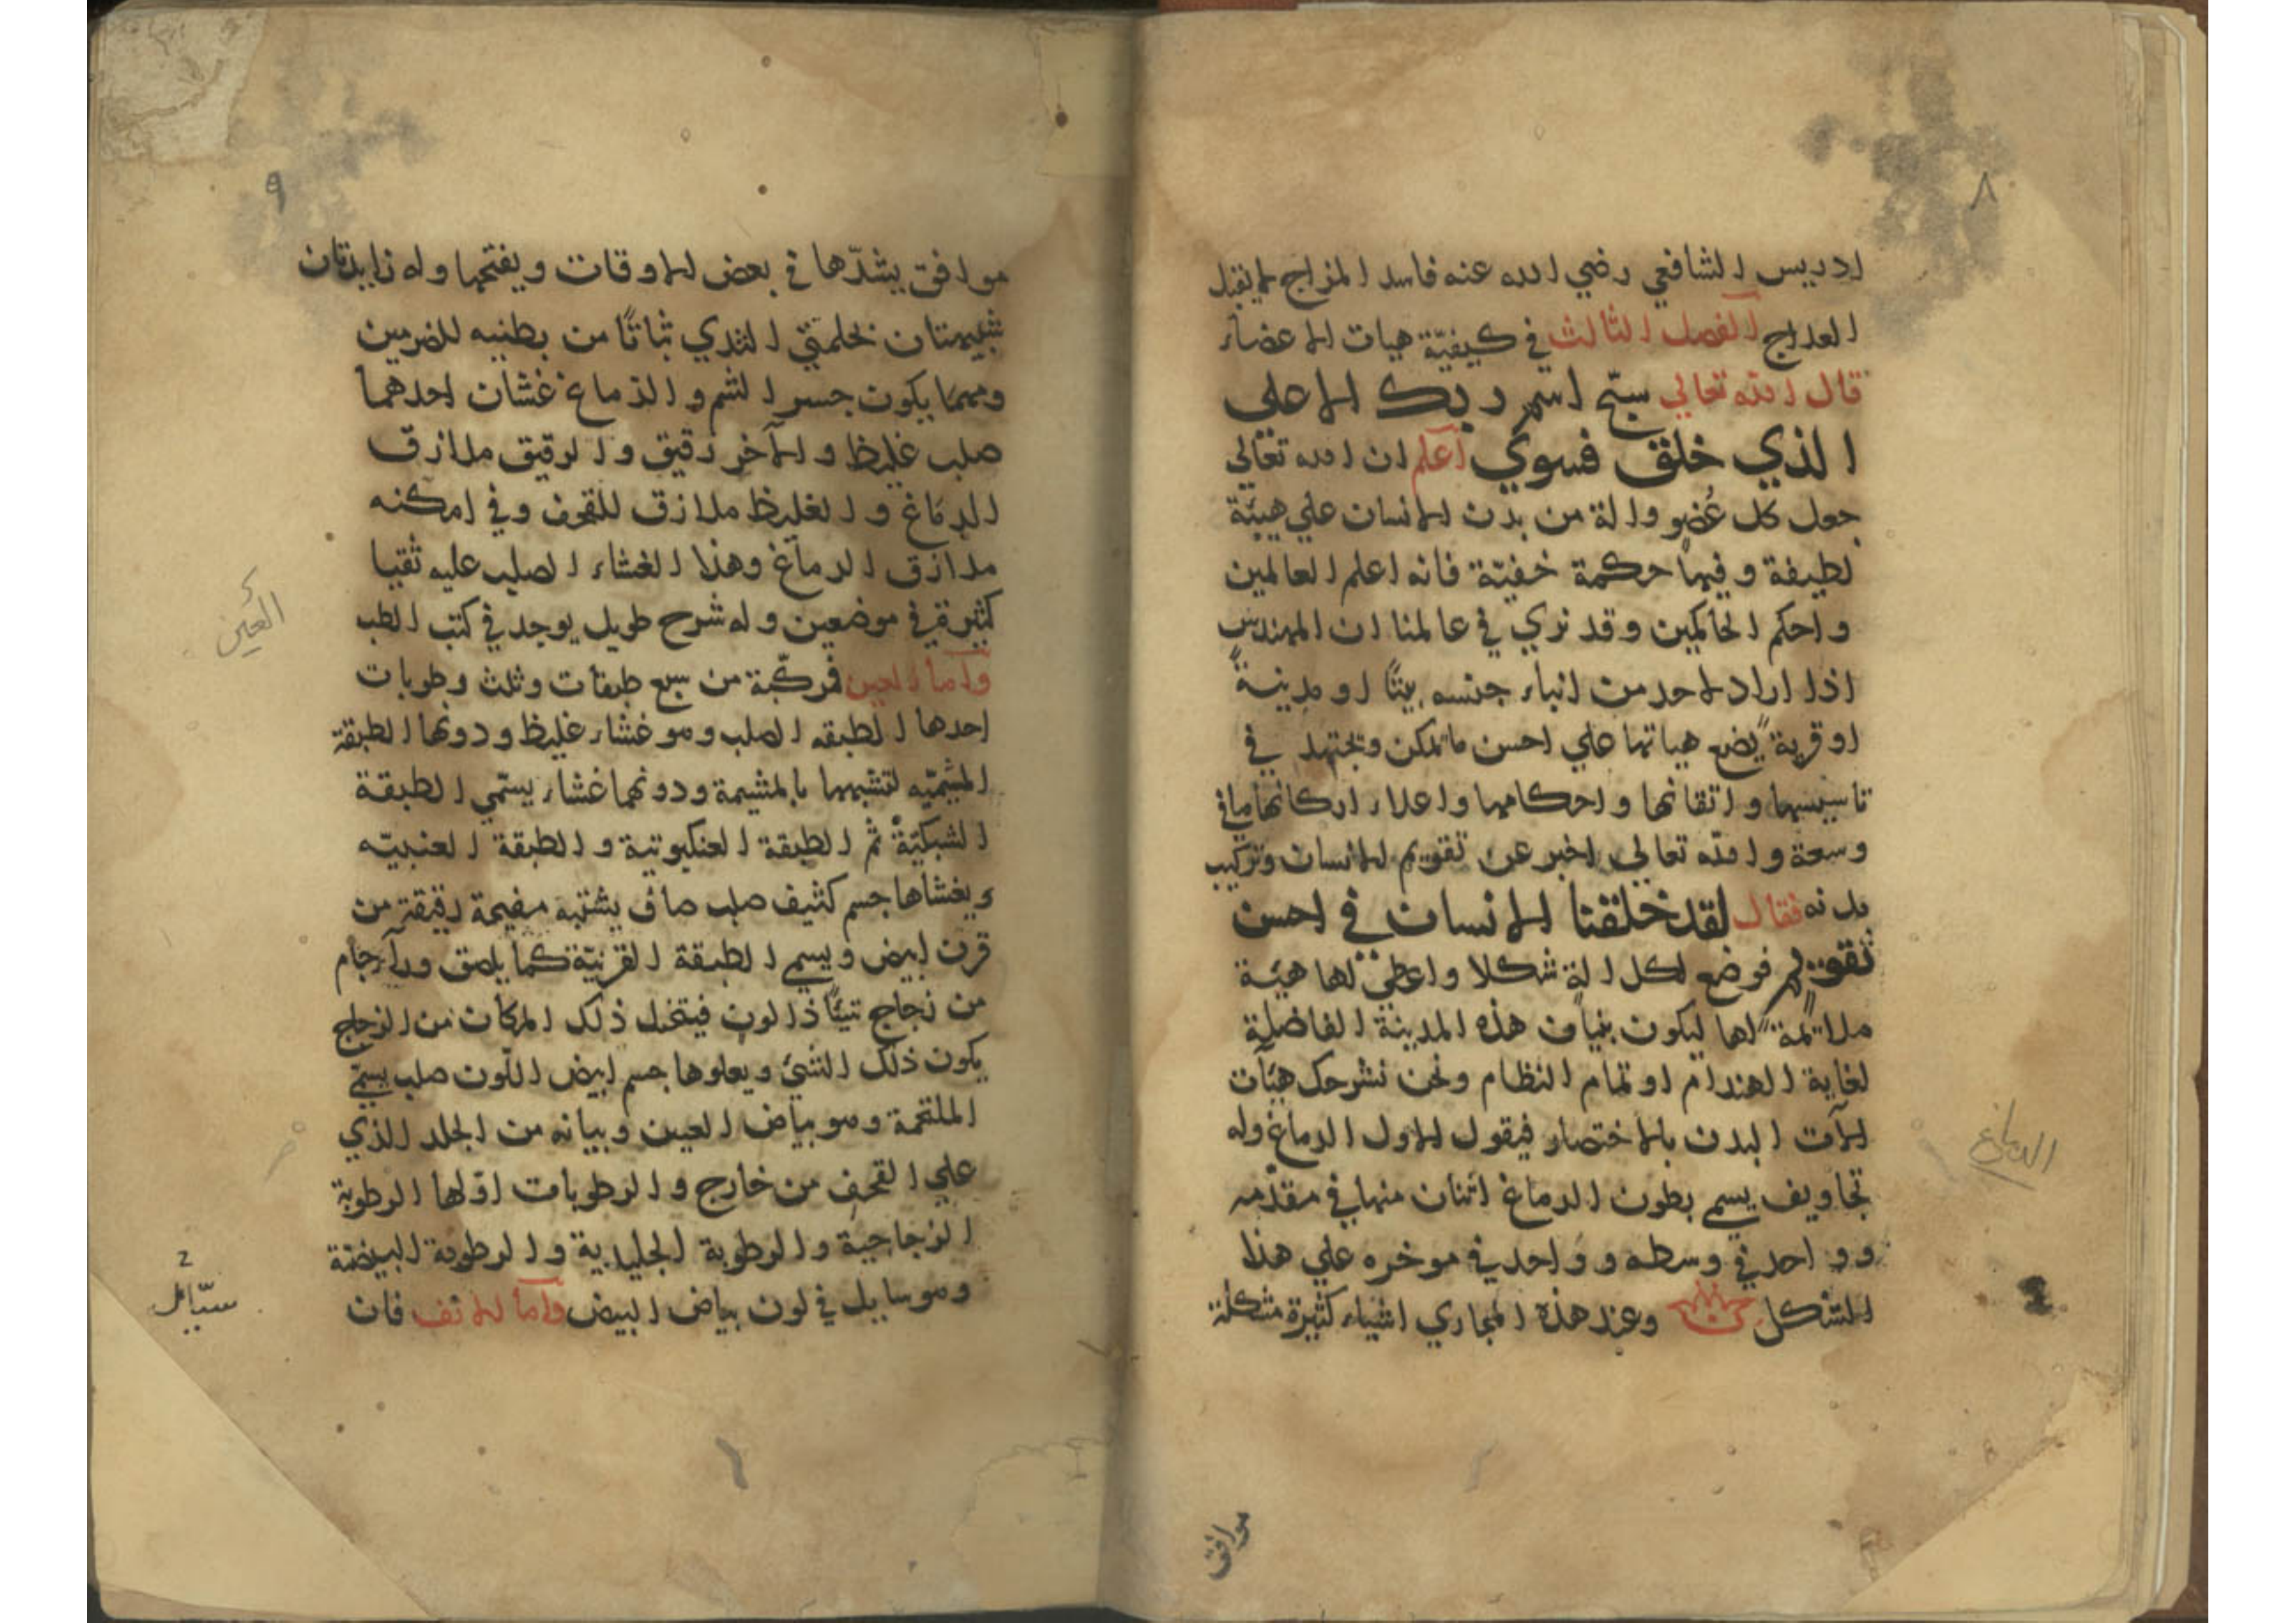 ٨
ادريس الشافعي رضي الله عنه فاسد المزاج لا يقبل
العلاج الفصل الثالث في كيفيّة هيات الاعضاء
قال الله تعالي سبّح اسم ربك الاعلي
الذي خلق فسوي اعلم ان الله تعالي
جعل كل عُضو والة من بدن الانسان علي هيئة
لطيفة وفيها حكمة خفيّة فانه اعلم العالمين
واحكم الحاكمين وقد نري في عالمنا ان المهندس
اذا اراد لاحد من انباء جنسه بيتًا او مدينةً
او قريةً يضع هياتها علي احسن ما يمكن ويجتهد في
تاسيسها واتقانها واحكامها واعلاء اركانها ما في
وسعة والله تعالي اخبر عن تقويم الانسان وتركيب
بدنه فقال لقد خلقنا الانسان في احسن
تقويم فوضع لكل الة شكلا واعطي لها هيئة
ملائمة لها ليكون بنيان هذه المدينة الفاضلة
لغاية الهندام او تمام النظام ونحن نشرحك هيآت
الآت البدن بالاختصار فيقول الاول الدماغ وله
تجاويف يسمي بطون الدماغ اثنان منها في مقدّمه
وواحد في وسطه وواحد في موخره علي هذا
الشكل وعند هذه المجاري اشياء كثيرة مشكلة
الدماغ
موافق
٩
موافق يشدّها في بعض الاوقات ويفتحها وله زايدتان
شبيهتان بحلمتي الثدي ثباتًا من بطنيه للضرمين
وبهما يكون جسر الشم والدماغ غشان احدهما
صلب غليظ والآخر رقيق والرقيق ملازق
الدماغ والغليظ ملازق للقحف وفي امكنه
ملازق الدماغ وهذا الغشاء الصلب عليه ثقبا
كثيرة في موضعين وله شرح طويل يوجد في كتب الطب
وامّا العين فمركّبة من سبع طبقات وثلث رطوبات
احدها الطبقه الصلب وهو غشاء غليظ ودونها الطبقة
المشيميّه لتشبهها بالمشيمة ودونهما غشاء يسمّي الطبقة
الشبكيّة ثم الطبقة العنكبوتية والطبقة العنبيّه
ويغشاها جسم كثيف صلب صاف يشتبه صفيحة رقيقة من
قرن ابيض ويسمي الطبقة القرنيّة كما يلصق ورآء جام
من زجاج شيئًا ذا لون فيتخيل ذلك المكان من الزجاج
يكون ذلك الشئ ويعلوها جسم ابيض اللّون صلب يسمّي
الملتحمة وهو بياض العين وبيانه من الجلد الذي
علي القحف من خارج والرطوبات اوّلها الرطوبة
الزجاجية والرطوبة الجليدية والرطوبة البيضة
وهو سايل في لون بياض البيض وامّا الانف فان
العين
2
سيّال